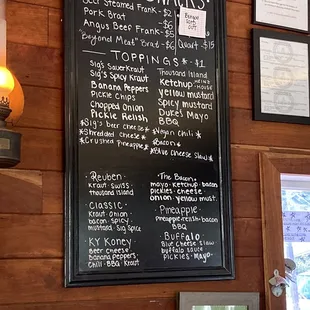 Beer Steamed Frank - $2
Pork Brat -
Angus Beef Frank - $5
"Beyond Meat" Brat - $6
Quart $15
TOPPINGS $1
Sig's Sauerkraut
Sig's Spicy Kraut
Banana Peppers
Pickle Chips
Chopped Onion
Pickle Relish
*Sig's beer cheese*
*Shredded cheese*
*Crushed Pineapple*
Thousand Island
Ketchup
yellow mustard
Spicy mustard
Duke's Mayo
BBQ
*Vegan Chili*
*Bacon*
*Blue Cheese Slaw*
Reuben
Kraut · Swiss
Thousand Island
Classic
Kraut · Onion
bacon · Spicy
mustard · Sig Spice
KY Koney
Beer Cheese
Banana Peppers
Chili · BBQ · Kraut
The Bacon
mayo · ketchup · bacon
pickles · cheese
onion · yellow must.
Pineapple
pineapple · relish · bacon
BBQ
Buffalo
Blue cheese Slaw
buffalo sauce
pickles · Mayo